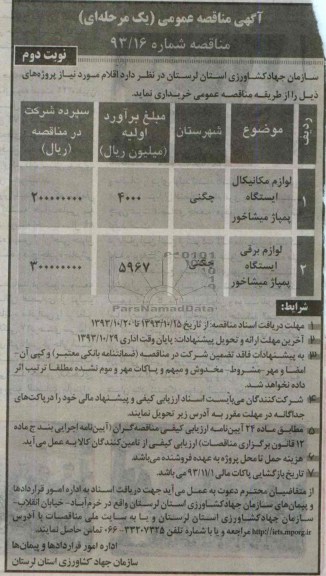 آگهی مناقصه عمومی (یک مرحله‌ای)
مناقصه شماره ۹۳/۱۶
نوبت دوم
سازمان جهادکشاورزی استان لرستان در نظر دارد اقلام مورد نیاز پروژه‌های
ذیل را از طریقه مناقصه عمومی خریداری نماید.
ردیف موضوع شهرستان مبلغ برآورد اولیه (میلیون ریال) سپرده شرکت در مناقصه (ریال)
۱ لوازم مکانیکال ایستگاه پمپاژ میشاخور چگنی ۴۰۰۰ ۲۰۰۰۰۰۰۰۰
۲ لوازم برقی ایستگاه پمپاژ میشاخور چگنی ۵۹۶۷ ۳۰۰۰۰۰۰۰۰
ParsNamadData
شرایط:
۱ مهلت دریافت اسناد مناقصه: از تاریخ ۱۳۹۳/۱۰/۱۵ تا ۱۳۹۳/۱۰/۲۰
۲ آخرین مهلت ارائه و تحویل پیشنهادات: پایان وقت اداری ۱۳۹۳/۱۰/۲۹
۳ به پیشنهادات فاقد تضمین شرکت در مناقصه (ضمانتنامه بانکی معتبر) و کپی آن-
امضا و مهر-مشروط- مخدوش و مبهم و پاکات مهر و موم نشده مطلقا ترتیب اثر
داده نخواهد شد.
۴ شرکت‌کنندگان می‌بایست اسناد ارزیابی کیفی و پیشنهاد مالی خود را در پاکت‌های
جداگانه در مهلت مقرر به آدرس زیر تحویل نمایند.
مطابق ماده ۲۴ آیین‌نامه ارزیابی کیفی مناقصه‌گران (آیین‌نامه اجرایی بند ج ماده
۱۲ قانون برگزاری مناقصات) ارزیابی کیفی از تامین‌کنندگان کالا به عمل می‌آید.
۶ هزینه حمل تا محل پروژه به عهده فروشنده می‌باشد.
۷ تاریخ بازگشایی پاکات مالی ۹۳/۱۱/۱ می‌باشد.
از متقاضیان محترم دعوت به عمل می آید جهت دریافت اسناد به اداره امور قراردادها
و پیمان‌های سازمان جهادکشاورزی استان لرستان واقع در خرم‌آباد- خیابان انقلاب-
سازمان جهادکشاورزی استان لرستان و یا به سایت ملی مناقصات با آدرس
http://iets.mporg.ir مراجعه و یا با شماره تلفن ۳۳۲۰۷۳۲۵-۰۶۶ تماس حاصل نمایند.
اداره امور قراردادها و پیمان ها
سازمان جهاد کشاورزی استان لرستان